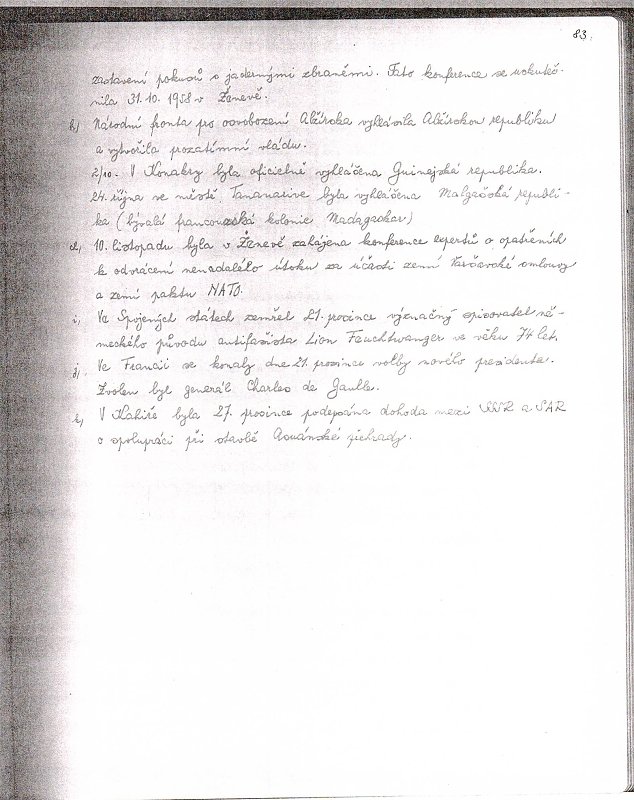 83.
zastavení pokusů s jadernými zbraněmi. Tato konference se uskuteč-
nila 31.10. 1958 v Ženevě.
h, Národní fronta pro osvobození Alžírska vyhlásila Alžírskou republiku
a vytvořila prozatímní vládu.
2/10. V Konakry byla oficielně vyhlášena Guinejská republika.
24. října ve městě Tananarive byla vyhlášena Malgašská republi-
ka (bývalá francouzská kolonie Madagaskar)
10. listopadu byla v Ženevě zahájena konference expertů o opatřeních
k odvrácení nenadálého útoku za účasti zemí Varšavské smlouvy
a zemí paktu NATO.
i, Ve Spojených státech zemřel 21. prosince význačný spisovatel ně-
meckého původu antifašista Lion Feuchtwanger ve věku 74 let.
j, Ve Francii se konaly dne 21. prosince volby nového presidenta.
Zvolen byl generál Charles de Gaulle.
k, V Kahiře byla 27. prosince podepsána dohoda mezi SSSR a SAR
o spolupráci při stavbě Asuánské přehrady.